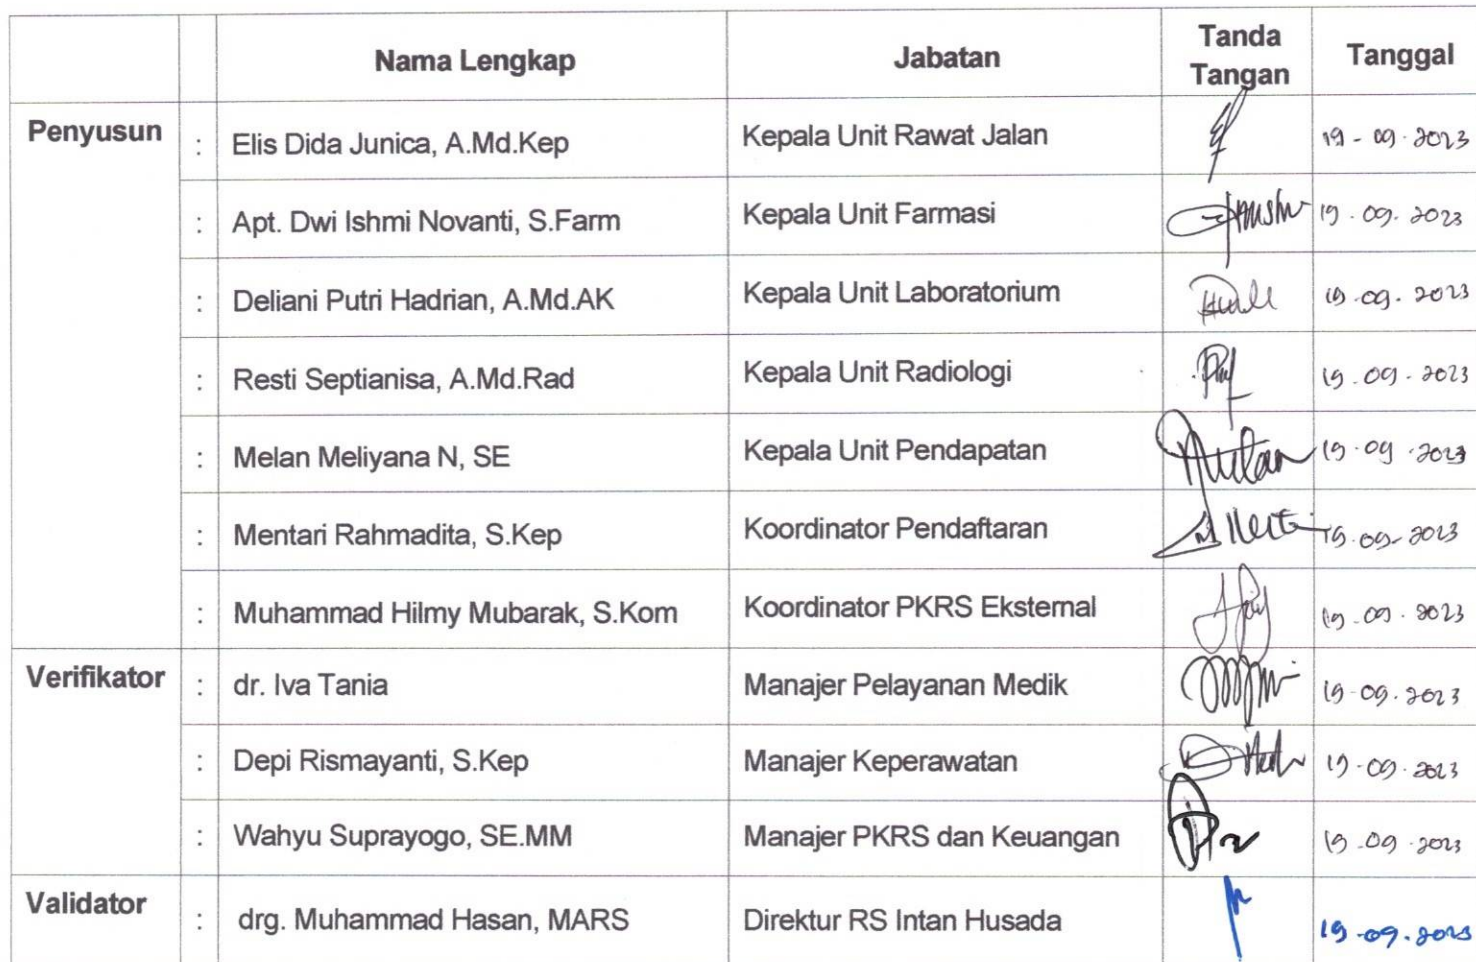 Nama Lengkap Jabatan Tanda Tangan Tanggal
Penyusun : Elis Dida Junica, A.Md.Kep Kepala Unit Rawat Jalan 19 - 09 - 2023
: Apt. Dwi Ishmi Novanti, S.Farm Kepala Unit Farmasi 19 . 09 . 2023
: Deliani Putri Hadrian, A.Md.AK Kepala Unit Laboratorium 19 . 09 . 2023
: Resti Septianisa, A.Md.Rad Kepala Unit Radiologi 19 . 09 . 2023
: Melan Meliyana N, SE Kepala Unit Pendapatan 19 . 09 . 2023
: Mentari Rahmadita, S.Kep Koordinator Pendaftaran 19 . 09 . 2023
: Muhammad Hilmy Mubarak, S.Kom Koordinator PKRS Eksternal 19 . 09 . 2023
Verifikator : dr. Iva Tania Manajer Pelayanan Medik 19 . 09 . 2023
: Depi Rismayanti, S.Kep Manajer Keperawatan 19 . 09 . 2023
: Wahyu Suprayogo, SE.MM Manajer PKRS dan Keuangan 19 . 09 . 2023
Validator : drg. Muhammad Hasan, MARS Direktur RS Intan Husada 19 . 09 . 2023